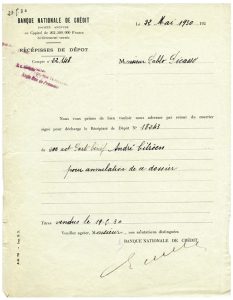 BANQUE NATIONALE DE CRÉDIT
SOCIÉTÉ ANONYME
au Capital de Francs
Le 22 Mai 1930
RÉCÉPISSÉS DE DÉPOT
Compte 62.148
Monsieur Pablo Picasso
Nous vous prions de bien vouloir nous adresser par retour du courrier
signé pour décharge le Récépissé de Dépôt N° 18243
de 100 act Part bénéf André Citroën
pour annulation de dossier
Titres vendus le 19.5.30
Veuillez agréer, Monsieur, nos salutations distinguées.
BANQUE NATIONALE DE CRÉDIT